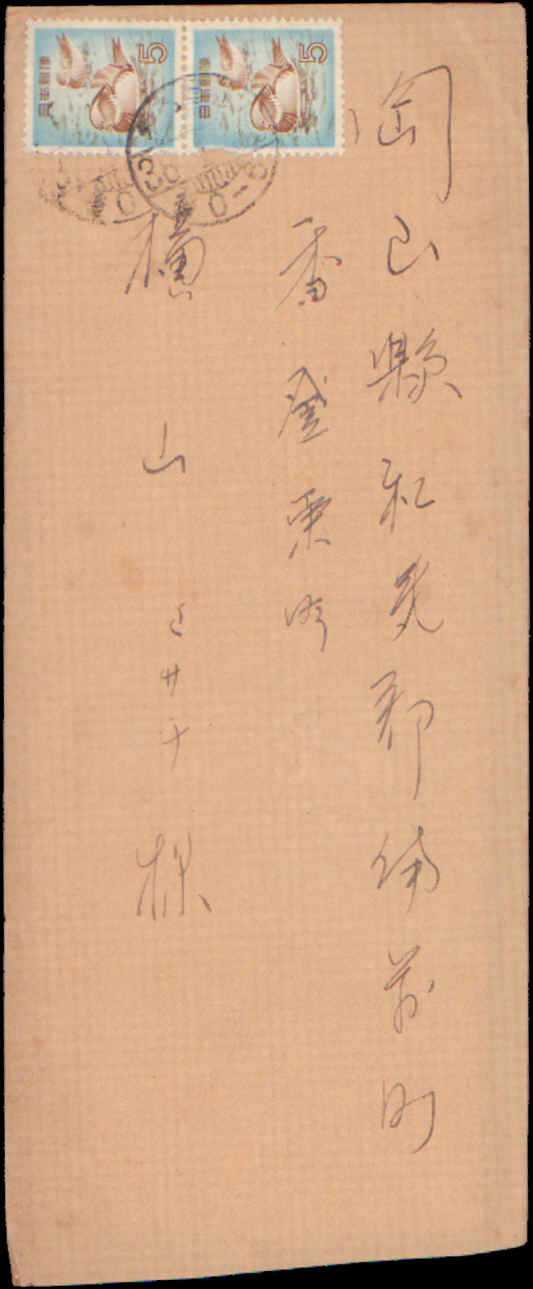 岡山縣和気郡備前町
香登東町
横山ミサヲ様
5
日本郵便
5
日本郵便